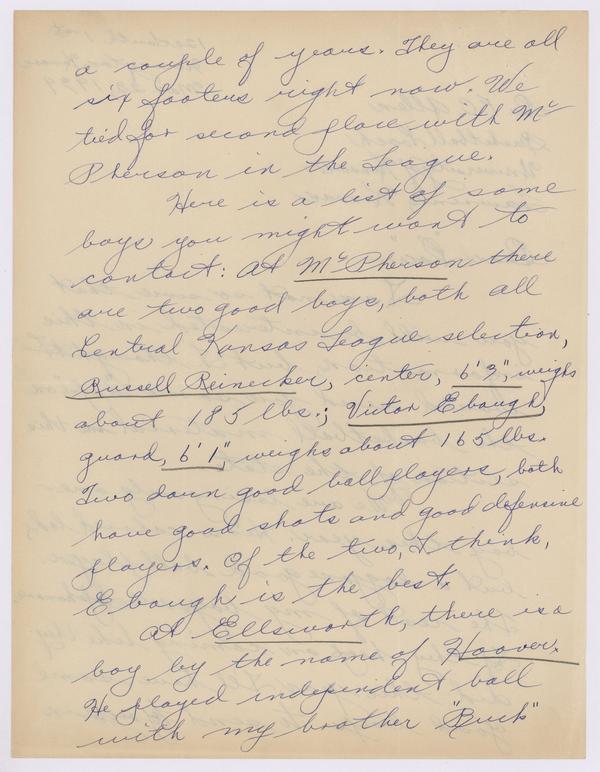 a couple of years. They are all
six footers right now. We
tied for second place with Mc
Pherson in the League.
Here is a list of some
boys you might want to
contact: At McPherson there
are two good boys, both all
Central Kansas League selection,
Russell Reinecker, center, 6'3", weighs
about 185 lbs.; Victor Ebaugh,
guard, 6'1", weighs about 165 lbs.
Two darn good ballplayers, both
have good shots and good defensive
players. Of the two, I think,
Ebaugh is the best.
At Ellsworth, there is a
boy by the name of Hoover.
He played independent ball
with my brother "Buck"